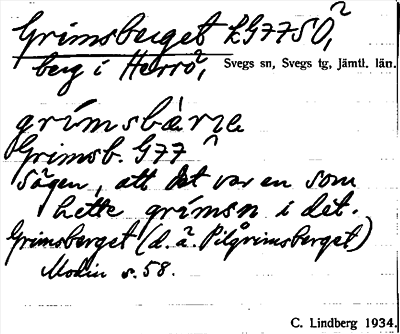 Grimsberget LG77SO,²
berg i Herrö², Svegs sn, Svegs tg, Jämtl. län.
grímsbàrᴊe
Grimsb. G77
Sägen, att det var en som
hette grímsn i det.
Grimsberget (d.ä. Pilgrimsberget)
Modin s. 58.
C. Lindberg 1934.